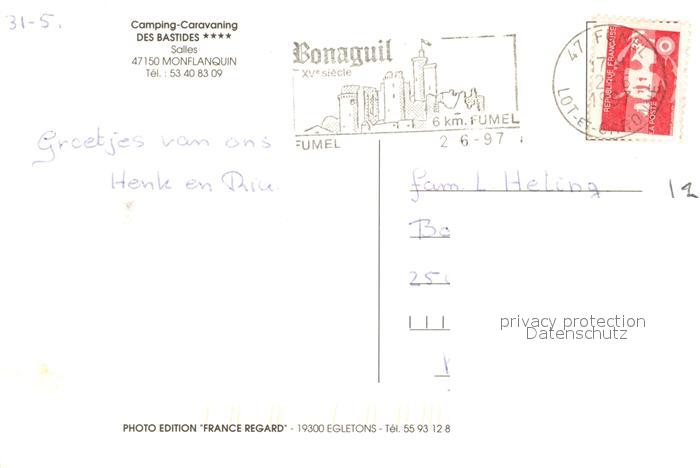 31-5.
Camping-Caravaning
DES BASTIDES ★★★★
Salles
47150 MONFLANQUIN
Tél. : 53 40 83 09
Bonaguil
XVe siècle
6 km. FUMEL
FUMEL
2 6-97
47 FUMEL
LOT-ET-GARONNE
REPUBLIQUE FRANÇAISE
LA POSTE
Groetjes van ons
Henk en Riu.
fam. L Heling
12
Bo
250
privacy protection
Datenschutz
PHOTO EDITION "FRANCE REGARD" - 19300 EGLETONS - Tél. 55 93 12 8